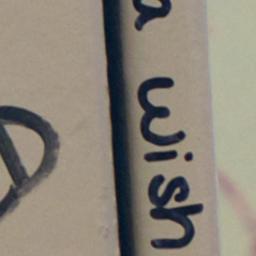 a wish